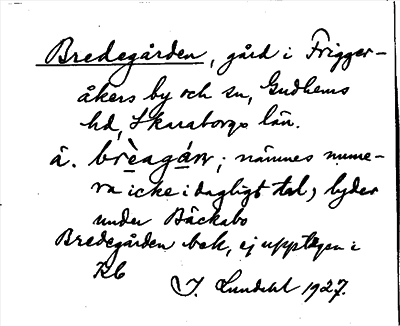 Bredegården, gård i Frigger-
åkers by och sn, Gudhems
hd, Skaraborgs län.
å. brèagán; nämnes nume-
ra icke i dagligt tal, lyder
under Bäckabo
Bredegården bok, ej upptagen i
Kb
J. Lundahl 1927.